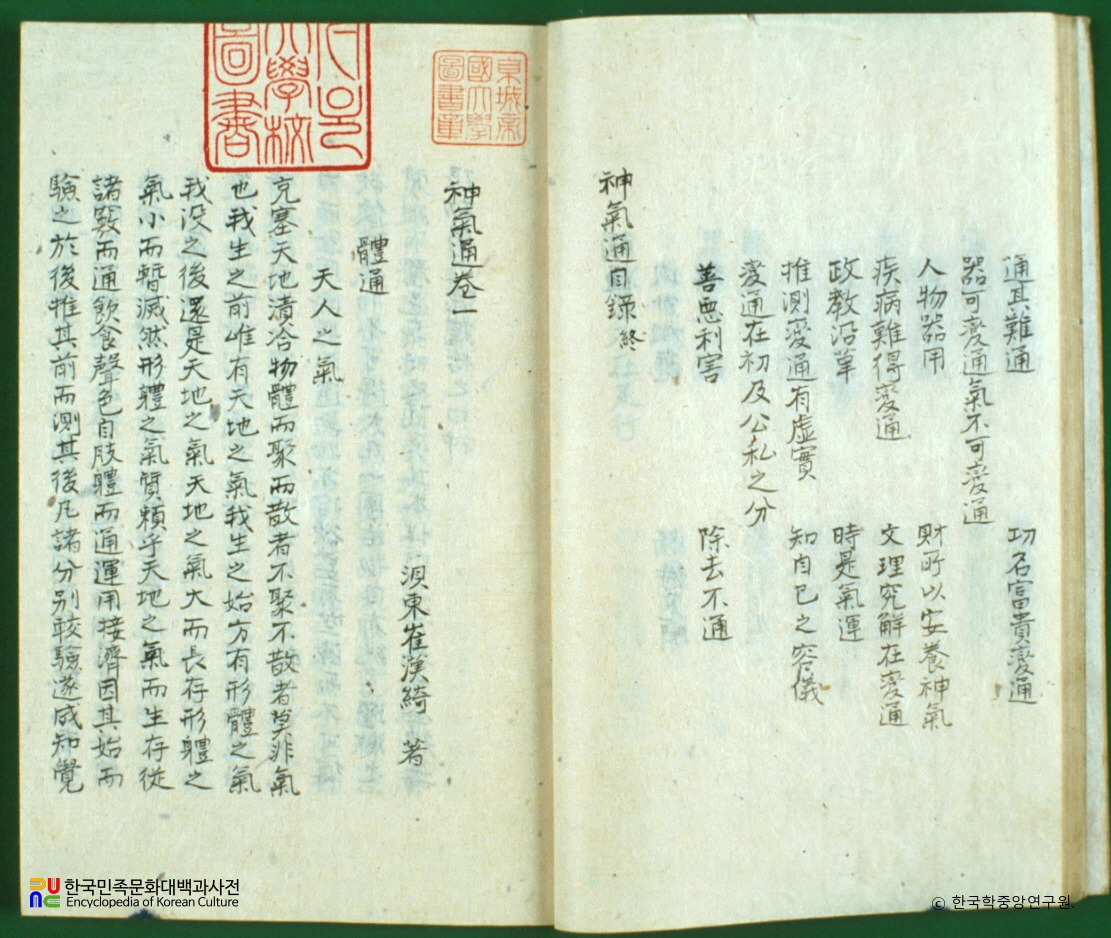 通其難通 功名富貴變通
器可變通氣不可變通
人物器用 財所以安養神氣
疾病難得變通 文理究解在變通
政教沿革 時是氣運
推測變通有虛實 知自己之容儀
變通在初及公私之分
善惡利害 除去不通
神氣通目錄終
京城帝
國大學
圖書章
大學校
圖書
神氣通卷一
浿東崔漢綺 著
體通
天人之氣
充塞天地漬洽物體而聚而散者不聚不散者莫非氣
也我生之前唯有天地之氣我生之始方有形體之氣
我沒之後還是天地之氣天地之氣大而長存形體之
氣小而暫滅然形體之氣質賴乎天地之氣而生存從
諸竅而通飲食聲色自肢體而通運用接濟因其始而
驗之於後推其前而測其後凡諸分別較驗遂成知覺
한국민족문화대백과사전
Encyclopedia of Korean Culture
© 한국학중앙연구원.